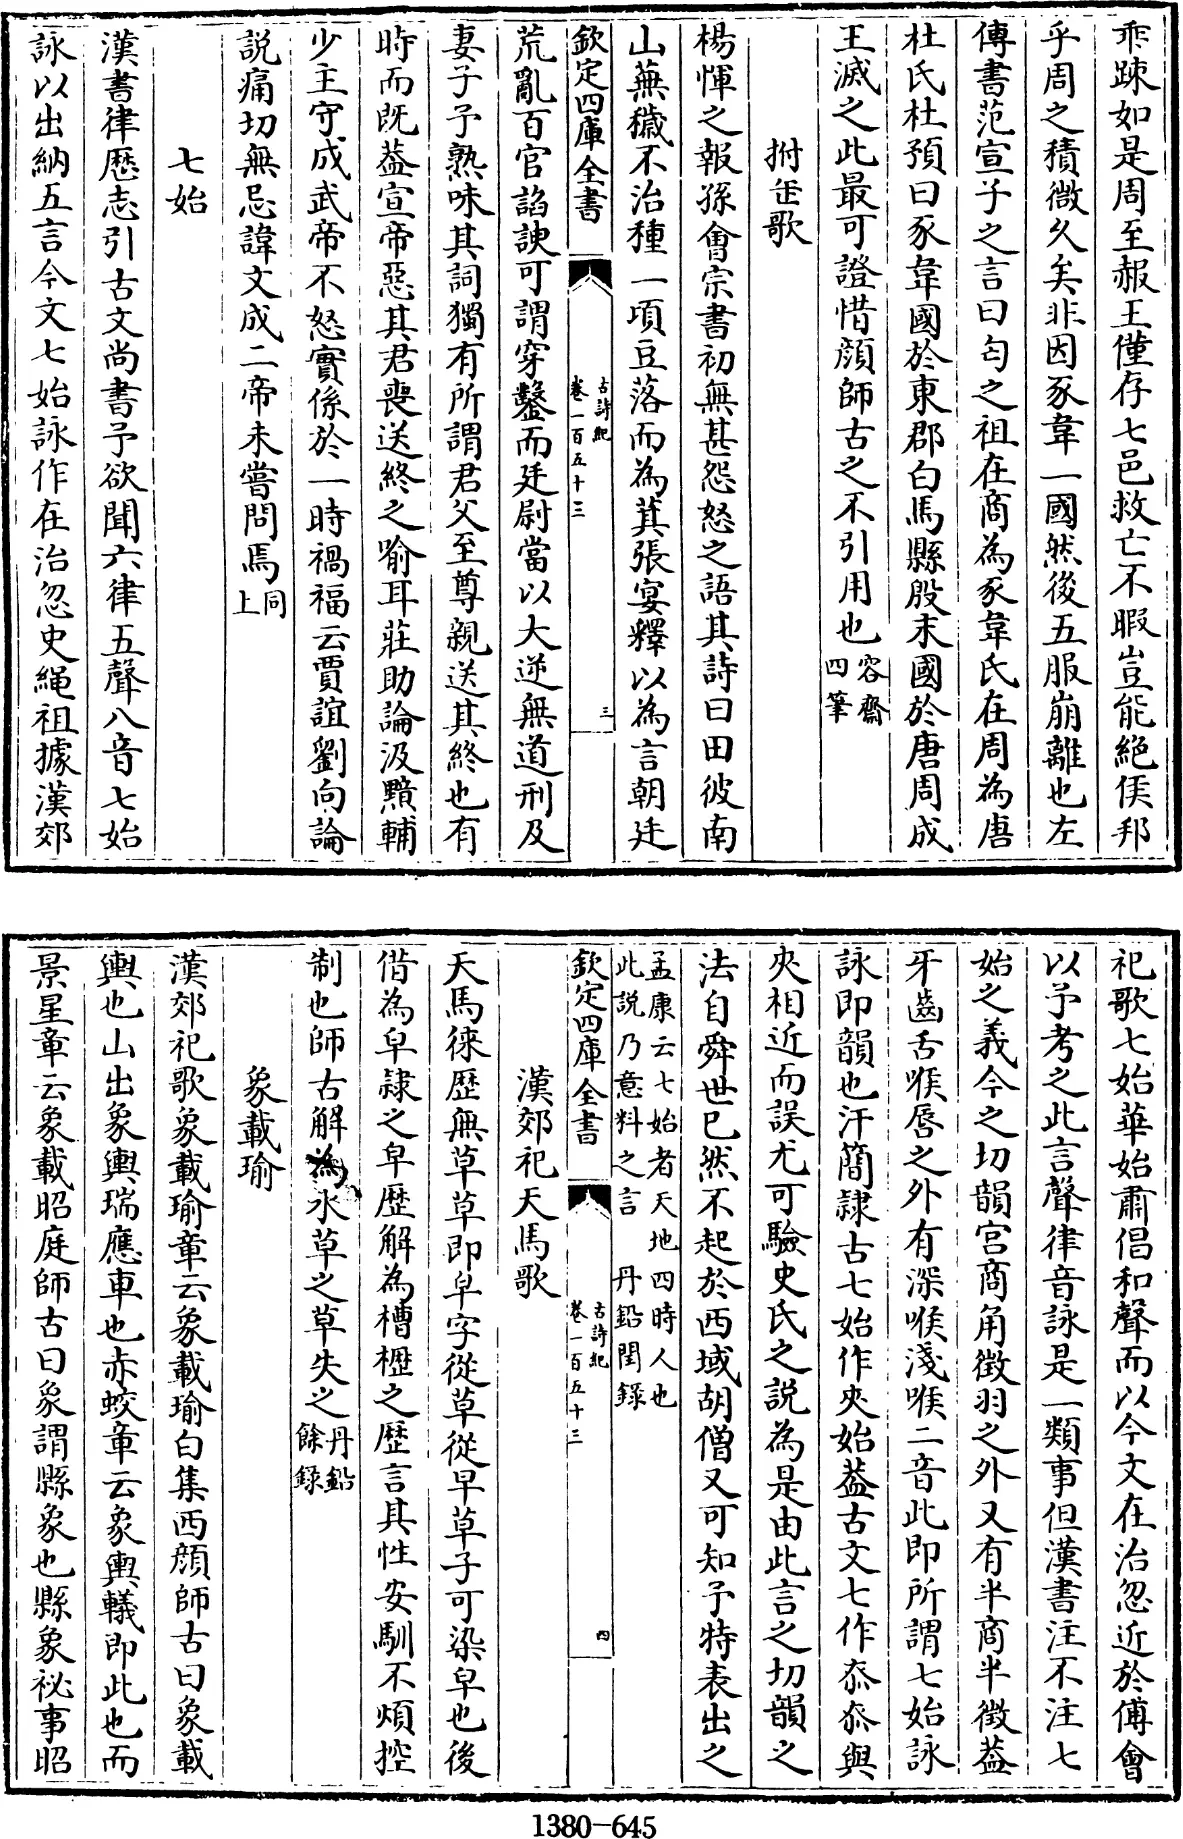 乖踈如是周至赧王僅存七邑救亡不暇豈能絶侯邦
乎周之積微乆矣非因豕韋一國然後五服崩離也左
傳書范宣子之言曰匄之祖在商為豕韋氏在周為唐
杜氏杜預曰豕韋國於東郡白馬縣殷末國於唐周成
王滅之此最可證惜顔師古之不引用也容齋四筆
拊缶歌
楊惲之報孫㑹宗書初無甚怨怒之語其詩曰田彼南
山蕪穢不治種一頃豆落而為萁張宴釋以為言朝廷
欽定四庫全書
古詩紀
卷一百五十三
三
荒亂百官諂諛可謂穿鑿而廷尉當以大逆無道刑及
妻子予熟味其詞獨有所謂君父至尊親送其終也有
時而既葢宣帝惡其君喪送終之喻耳莊助論汲黯輔
少主守成武帝不怒實係於一時禍福云賈誼劉向論
説痛切無忌諱文成二帝未嘗問焉同上
七始
漢書律厯志引古文尚書予欲聞六律五聲八音七始
詠以出納五言今文七始詠作在治忽史繩祖據漢郊
祀歌七始華始肅倡和聲而以今文在治忽近於傅會
以予考之此言聲律音詠是一類事但漢書注不注七
始之義今之切韻宫商角徵羽之外又有半商半徵葢
牙齒舌喉唇之外有深喉淺喉二音此即所謂七始詠
詠即韻也汗簡隷古七始作夾始葢古文七作桼桼與
夾相近而誤尤可驗史氏之説為是由此言之切韻之
法自舜世已然不起於西域胡僧又可知予特表出之
孟康云七始者天地四時人也
此説乃意料之言　丹鉛閏録
欽定四庫全書
古詩紀
卷一百五十三
四
漢郊祀天馬歌
天馬徠歴無草草即皁字從草從早草子可染皁也後
借為皁隷之皁歴解為槽櫪之歴言其性安馴不煩控
制也師古解為水草之草失之丹鉛餘録
象載瑜
漢郊祀歌象載瑜章云象載瑜白集西顔師古曰象載
輿也山出象輿瑞應車也赤蛟章云象輿轙即此也而
景星章云象載昭庭師古曰象謂縣象也縣象祕事昭
1380-645